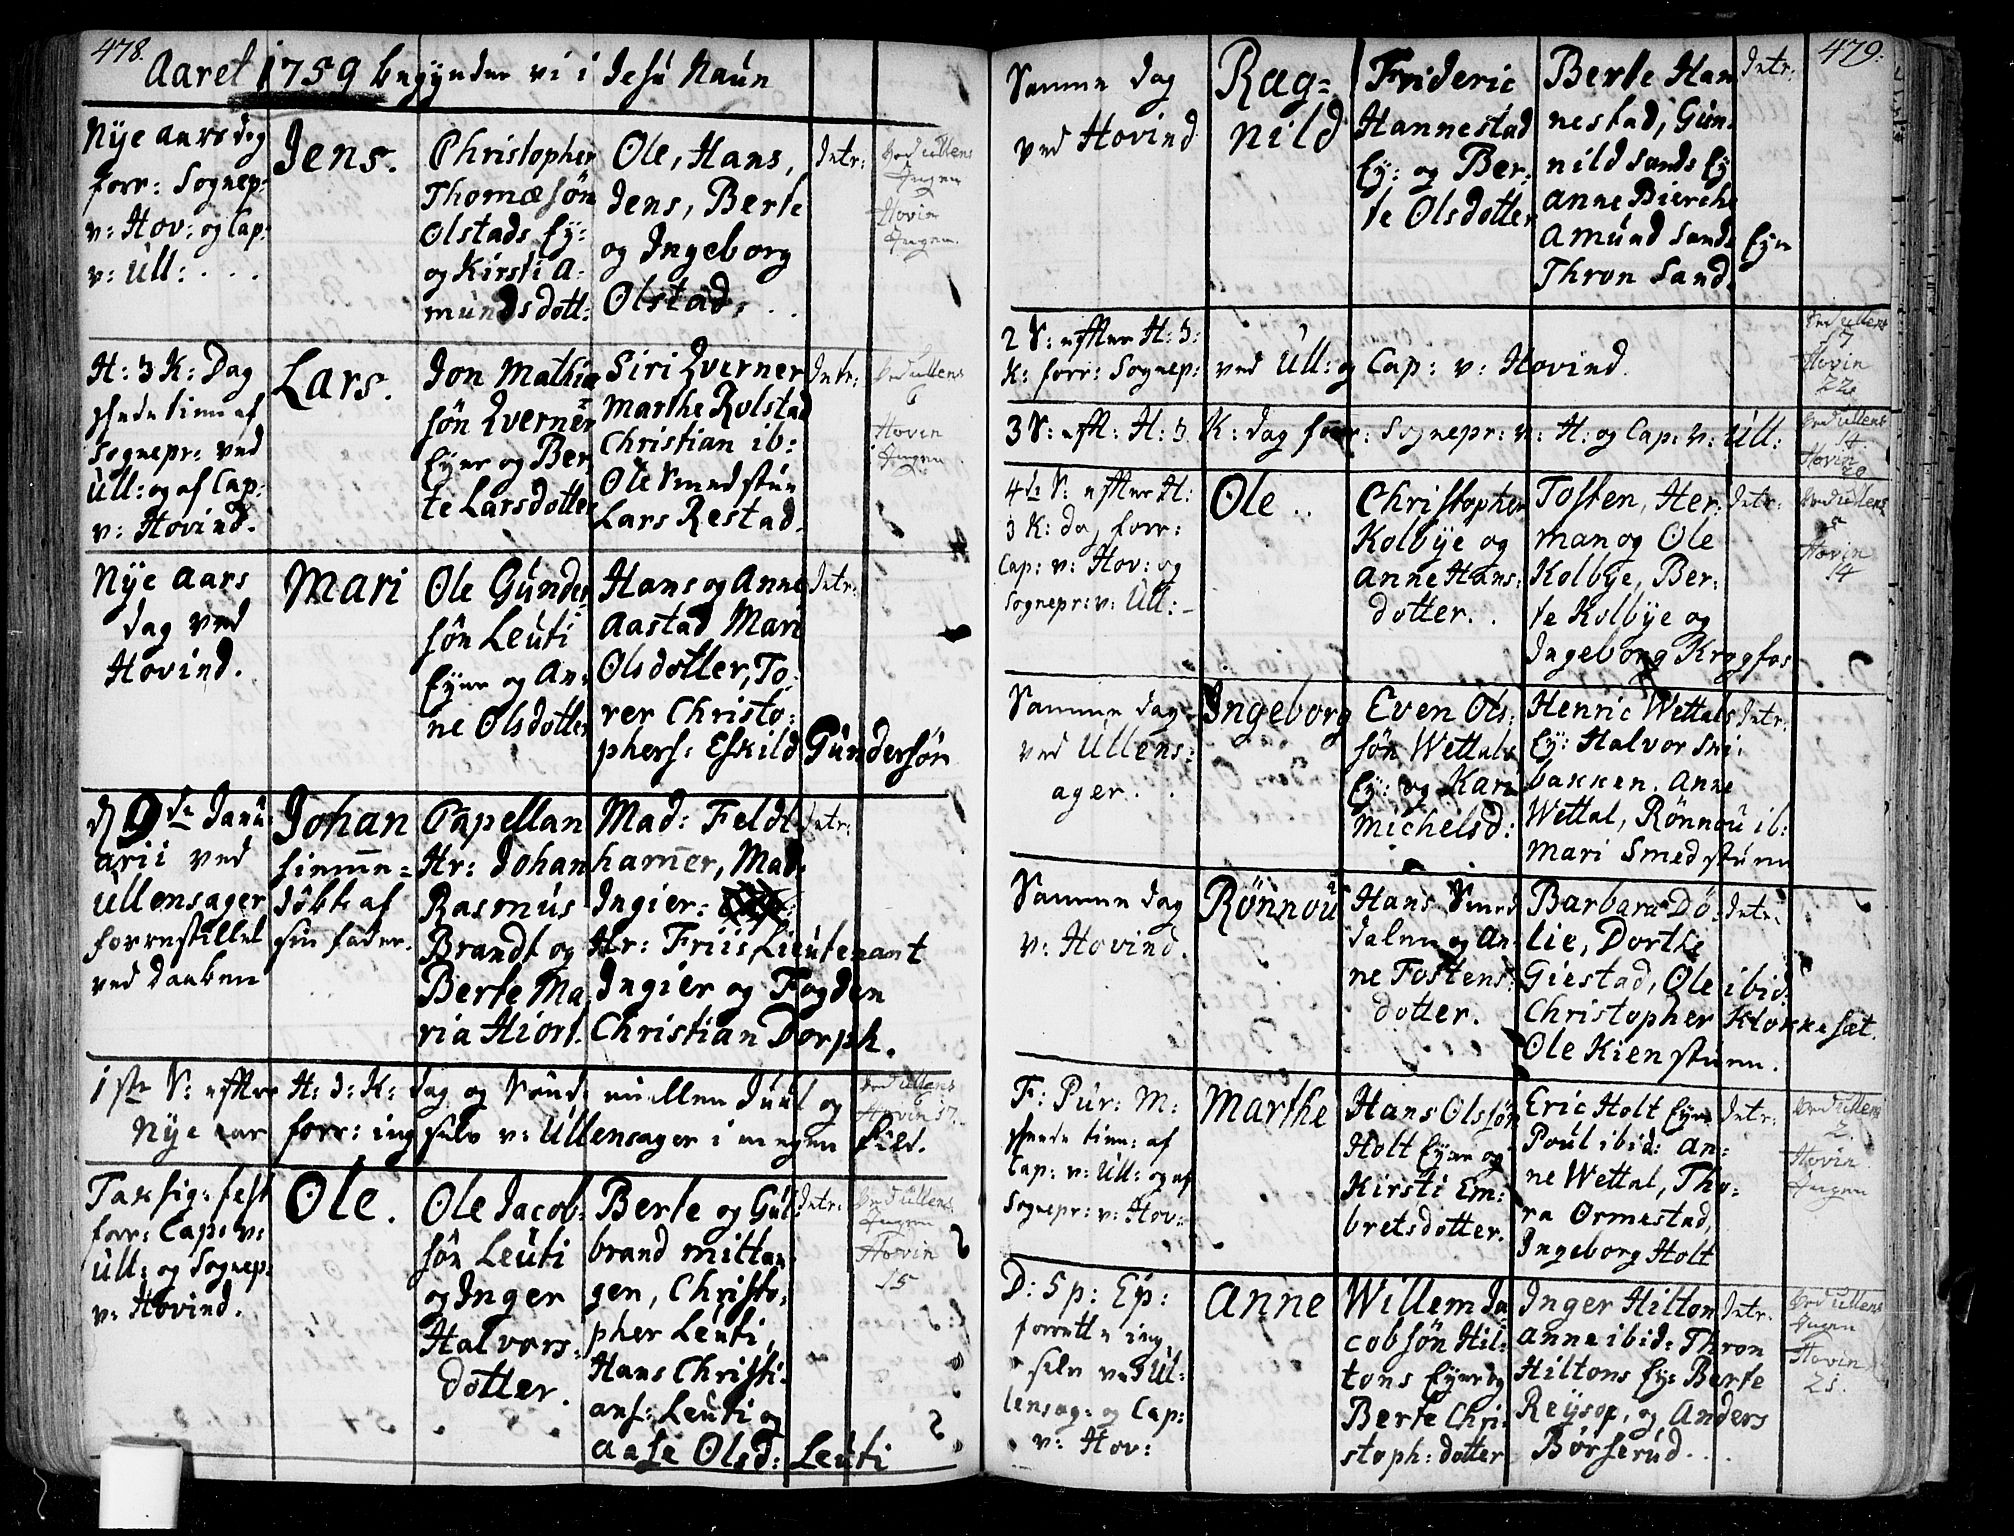 478.
Aaret 1759 begynder vi i Jesu Naun
Nye aarsdag
forr: Sognep:
v: Hov: og Cap:
v: Ull: . . .
Jens.
Christopher
Thomæsøn
Olstads Ey:
og Kirsti A:
mundsdott:
Ole, Hans,
Jens, Berte
og Ingeborg
Olstad. . .
Intr:
Ved Ullens
Ingen
Hovin
Ingen.
H: 3 K: Dag
skede tien: af
Sognepr: ved
Ull: og af Cap:
v: Hovind.
Lars.
Jon Mathiæ
søn Kverner
Eyer og Ber
te Larsdotter
Siri Kverner
Marthe Rolstad
Christian ib:
Ole Smedstun
Lars Restad.
Intr:
Ved Ullens
6
Hoven
Ingen
Nye Aars
dag ved
Hovind.
Mari
Ole Gunder
søn Leuti
Eyer og An:
ne Olsdotter
Hans og Anne
Aastad Mari
Olsdotter, To:
rer Christo:
phers: Eskild Gundersøn
Intr:
d 9de Janu
arii ved
Ullensager
forrestillet
ved Daaben
Johan
hiemme=
døbt af
sin fader.
Capellan
Hr: Johan
Rasmus
Brandt og
Berte Ma
ria Hiort.
Mad: Feldt
hamer, Mad:
Ingier:
Hr: Friis Lieutenant
Ingier og Fogden
Christian Dorph.
Intr:
1ste S: efter H: 3: K: dag og Sønd: mellem Juul og
Nye aar forr: ieg selv v: Ullensager i megen Kield.
Ved Ullens
6
Hovin 17.
Taksig: fest
forr: Cap: v:
Ull: og Sognep:
v: Hovind.
Ole.
Ole Jacob:
søn Leuti
og Inger
Halvors:
dotter.
Berte og Gul
brand mittan
gen, Christo:
pher Leuti,
Hans Christi
ans: Leuti og
Aase Olsd: Leuti
Intr:
Ved Ullens
Ingen
Hovin
15
479.
Samme dag
ved Hovind
Rag=
nild
Frideric
Hannestad
Ey: og Ber:
te Olsdotter
Berte Han
nestad, Gun:
nild Sands Ey
Anne Bierche
Amund Sands Eyer
Thron Sand.
Intr:
2 S: efter H: 3:
K: forr: Sognep: ved Ull: og Cap: v: Hovind.
Ved Ullens
17
Hovin
22
3 S: eft: H: 3 K: dag forr: Sognepr: v: H: og Cap: v: Ull:
Ved Ullens
14
Hovin
20
4de S: efter H:
3 K: dag forr:
Cap: v: Hov: og
Sognepr: v: Ull: -
Ole ..
Christopher
Kolbye og
Anne Hans:
dotter. .
Tosten, Her:
man og Ole
Kolbye, Ber:
te Kolbye og
Ingeborg Krogfos
Intr:
Ved Ullens
5
Hovin
14
Samme dag
ved Ullens:
ager. .
Ingeborg
Even Ols:
søn Wettals
Ey: og Kari
Michelsd:
Henric Wettals
Ey: Halvor Sni:
bakken. Anne
Wettal, Rønnou ib:
Mari Smedstuen
Intr:
Samme dag
v: Hovind.
Rønnou
Hans Smed
dalen og An:
ne Tostens:
dotter.
Barbara Dø:
lie, Dorthe
Giestad, Ole ibid:
Christopher Klokkesæt.
Ole Kienstuen.
Intr:
F: Pur: M:
skede tien: af
Cap: v: Ull: og af
Sognepr: v: Hov:
Marthe
Hans Olssøn
Holt Eyer og
Kirsti Em:
bretsdotter.
Eric Holt Eyer
Poul ibid: An:
ne Wettal, Tho:
ra Ormestad,
Ingeborg Holt
Intr:
Ved Ullens
2.
Hovin
Ingen
D: 5 p: Ep:
forrette ieg
selv ved Ul:
lensag: og Cap:
v: Hov:
Anne
Willem Ja
cobsøn Hil:
tons Eyer og
Berte Chri:
stoph: dotter
Inger Hilton
Anne ibid: Thron
Hiltons Ey: Berte
Reysop, og Anders
Børserud. . .
Intr:
Ved Ullens
Ingen
Hovin
21.